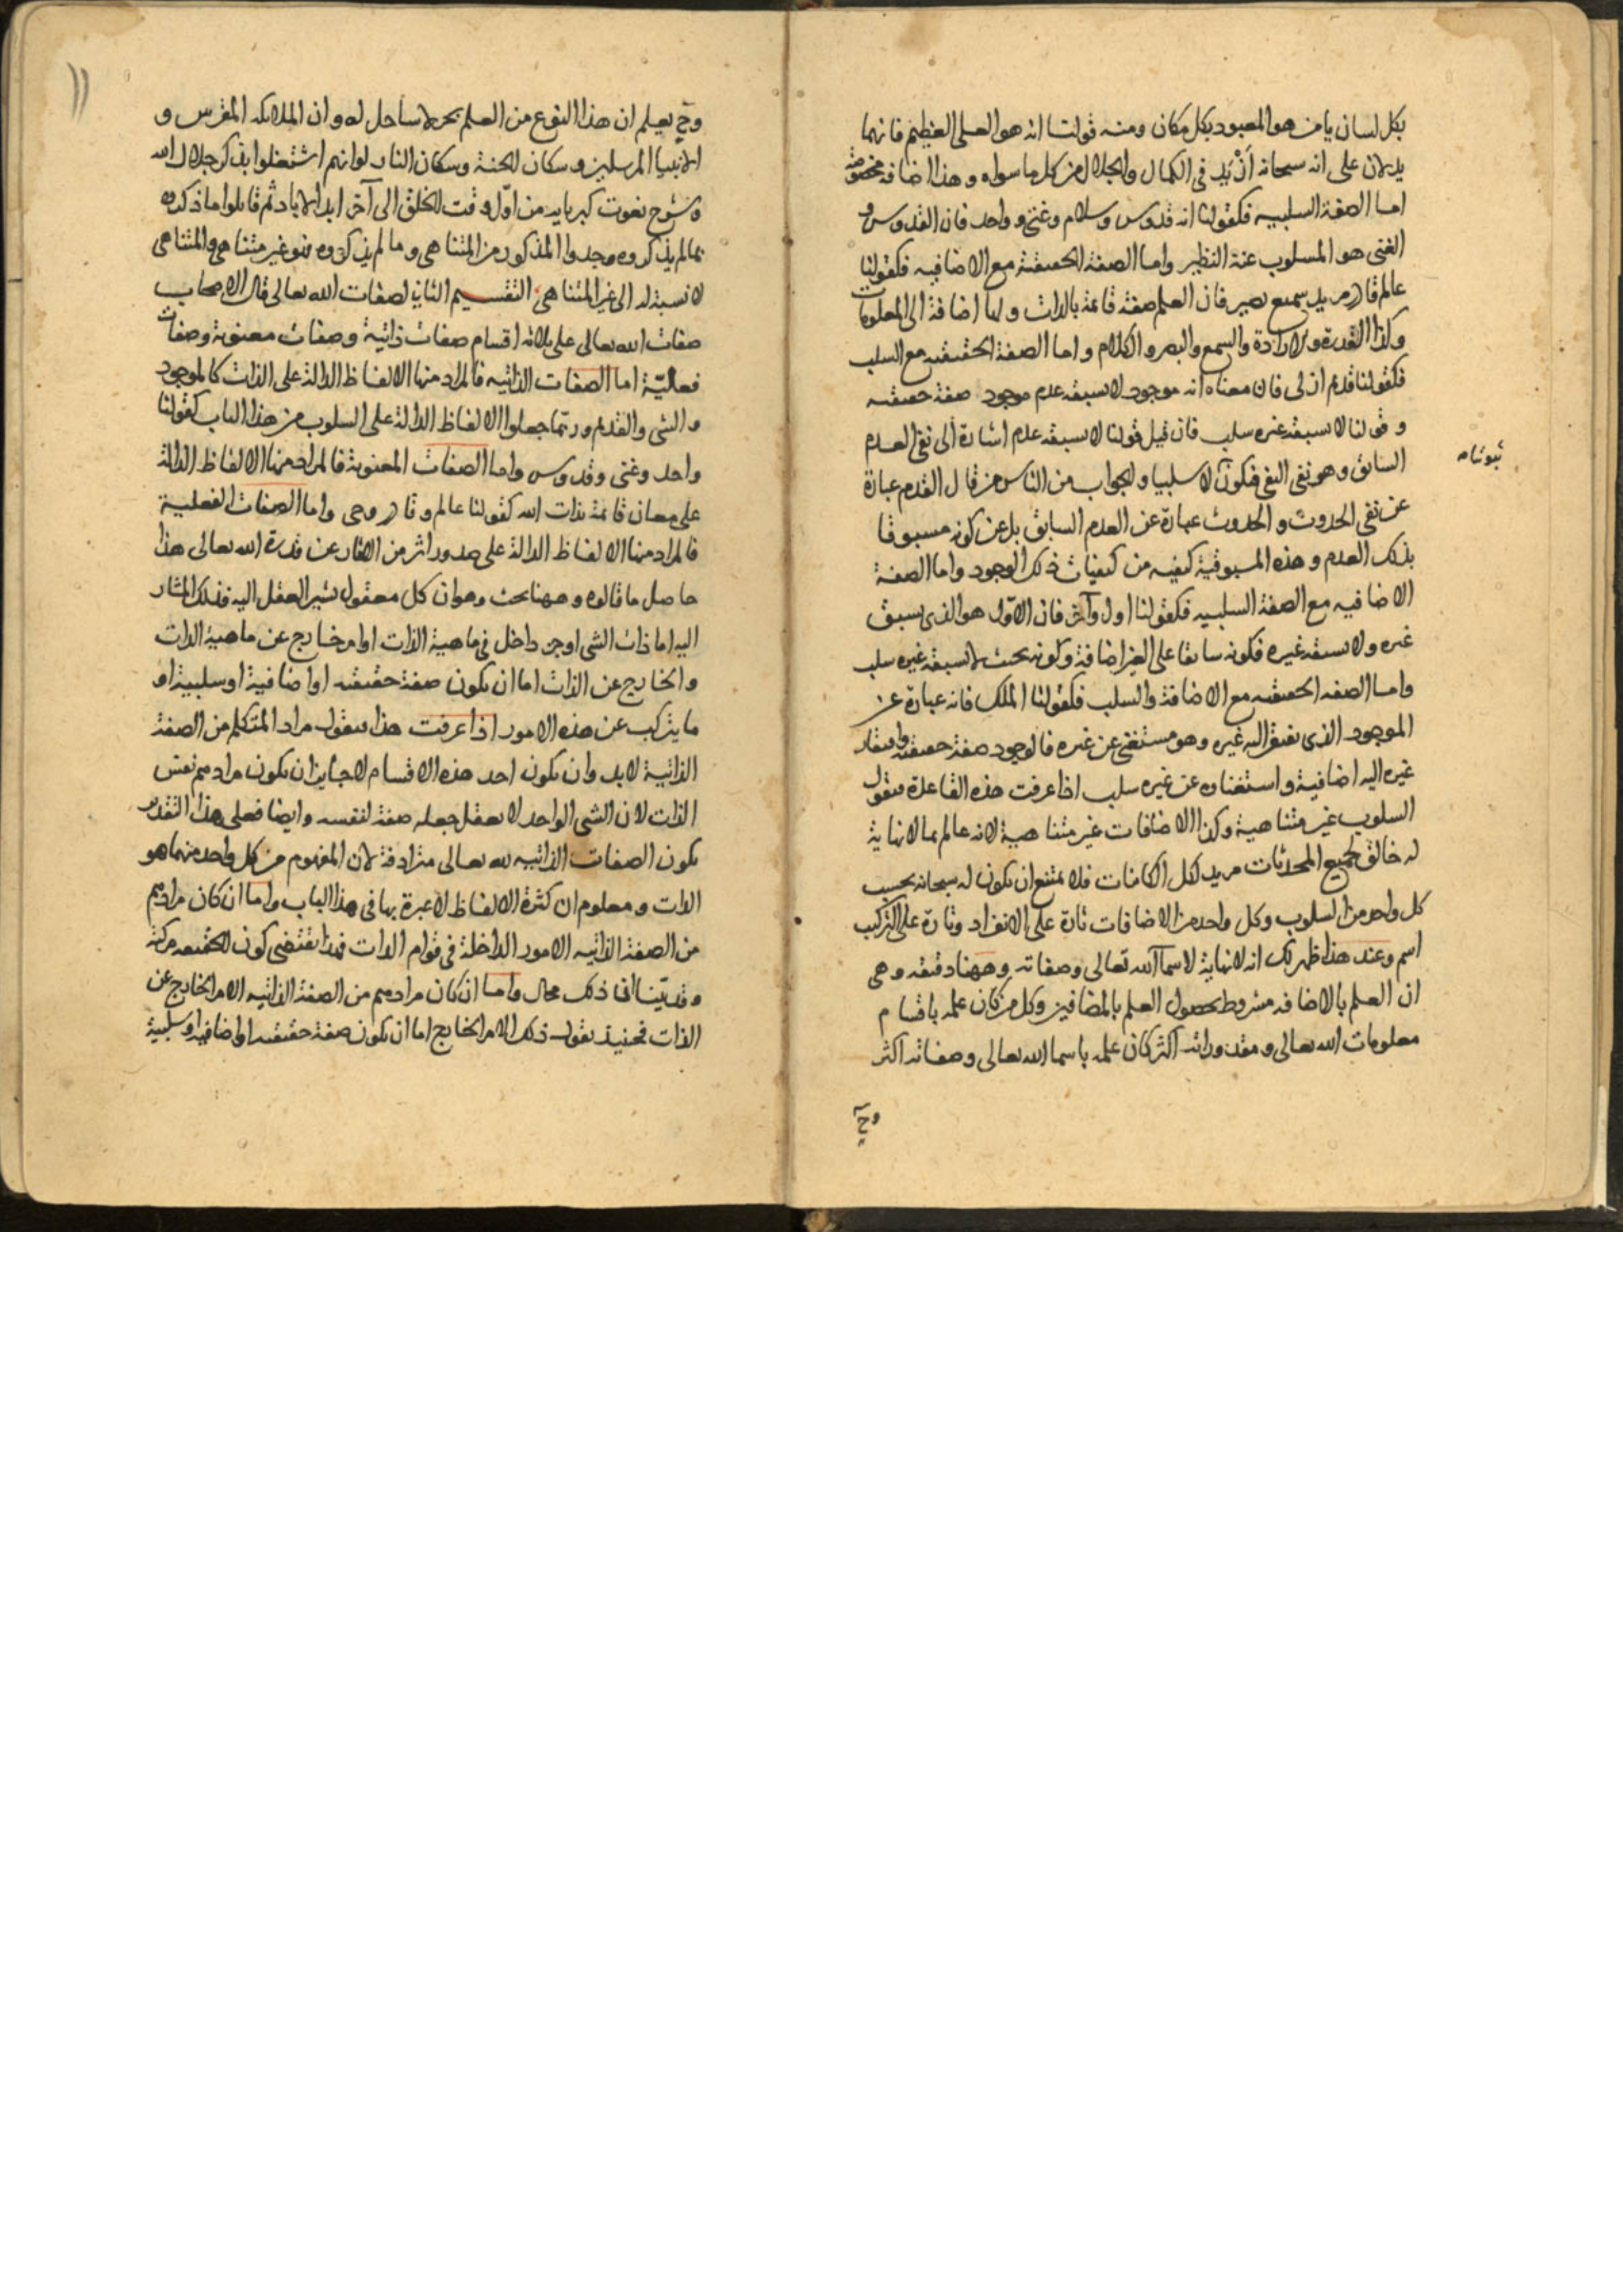 بكل لسان يا من هو المعبود بكل مكان ومنه قولنا انه هو العلى العظيم فانهما
يدلان على انه سبحانه ازيد فى الكمال والجلال من كل ما سواه وهذا اضافة مخصوصة
اما الصفة السلبيه فكقولنا انه قدوس وسلام وغنى وواحد فان القدوس و
الغنى هو المسلوب عنه النظير واما الصفة الحصصة مع الاضافيه فكقولنا
عالم قادر مريد سميع بصير فان العلم صفة قائمة بالذات ولها اضافة الى المعلومات
وكذا القدرة والارادة والسمع والبصر والكلام واما الصفة الحقيقيه مع السلب
فكقولنا قديم ازلى فان معناه انه موجود لا يسبقه عدم موجود صفة حقيقيه
وقولنا لا يسبقه غيره سلب فان قيل قولنا لا يسبقه عدم اشارة الى نفى العدم
السابق وهو نفى النفى فيكون لا سلبيا والجواب من الناس من قال القدم عبارة
ثبوتيا
عن نفى الحدوث والحدوث عبارة عن العدم السابق بل عن كونه مسبوقا
بذلك العدم وهذه المسبوقية كيفيه من كيفيات ذلك الوجود واما الصفة
الاضافيه مع الصفة السلبيه فكقولنا اول وآخر فان الاول هو الذى يسبق
غيره ولا يسبقه غيره فكونه سابقا على الغير اضافة وكونه بحيث لا يسبقه غيره سلب
واما الصفه الحقيقيه مع الاضافة والسلب فكقولنا الملك فانه عبارة عن
الموجود الذى يفتقر اليه غيره وهو مستغنى عن غيره فالوجود صفة حقيقيه وافتقار
غيره اليه اضافية واستغناوه عن غيره سلب اذا عرفت هذه القاعدة فنقول
السلوب غير متناهية وكذا الاضافات غير متناهية لانه عالم بما لا نهاية
له خالق لجميع المحدثات مريد لكل الكائنات فلا يمتنع ان يكون له سبحانه بحسب
كل واحد من السلوب وكل واحد من الاضافات تارة على الانفراد وتارة على التركيب
اسم وعند هذا ظهر لك انه لا نهاية لاسماء الله تعالى وصفاته وههنا دقيقه وهى
ان العلم بالاضافه مشروط بحصول العلم بالمضافين وكل من كان علمه باقسام
معلومات الله تعالى ومقدوراته اكثر كان علمه باسما الله تعالى وصفاته اكثر
وح
١١
وح يعلم ان هذا النوع من العلم بحر لا ساحل له وان الملائكه المقربين و
الانبيا المرسلين وسكان الجنة وسكان النار لو انهم اشتغلوا بذكر جلال الله
وشرح نعوت كبريايه من اول وقت الخلق الى آخر ابد الاباد ثم قابلوا ما ذكروه
بما لم يذكروه وجدوا المذكور من المتناهى وما لم يذكروه فهو غير متناهى والمتناهى
لا نسبة له الى غير المتناهى التقسيم الثانى لصفات الله تعالى قال الاصحاب
صفات الله تعالى على ثلاثه اقسام صفات ذاتية وصفات معنوية وصفات
فعلية اما الصفات الذاتيه فالمراد منها الالفاظ الدالة على الذات كالموجود
والشى والقديم وربما جعلوا الالفاظ الدالة على السلوب من هذا الباب كقولنا
واحد وغنى وقدوس واما الصفات المعنوية فالمراد منها الالفاظ الدالة
على معان قائمة بذات الله كقولنا عالم وقادر وحى واما الصفات الفعلية
فالمراد منها الالفاظ الدالة على صدور اثر من الاثار عن قدرة الله تعالى هذا
حاصل ما قالوه وههنا بحث وهو ان كل معقول يشير العقل اليه فذلك المشار
اليه اما ذات الشى او جز داخل فى ماهية الذات او امر خارج عن ماهية الذات
والخارج عن الذات اما ان يكون صفة حقيقيه او اضافية او سلبية او
ما يتركب عن هذه الامور اذا عرفت هذا فنقول مراد المتكلم من الصفة
الذاتية لابد وان يكون احد هذه الاقسام لا جايز ان يكون مرادهم نفس
الذات لان الشى الواحد لا يعقل جعله صفة لنفسه وايضا فعلى هذا التقدير
يكون الصفات الذاتيه لله تعالى مترادفة لان المفهوم من كل واحد منهما هو
الذات ومعلوم ان كثرة الالفاظ لا عبرة بها فى هذا الباب واما ان كان مرادهم
من الصفة الذاتيه الامور الداخلة فى قوام الذات فهذا يقتضى كون الحقيقه مركبة
وقد بينا ان ذلك محال واما ان كان مرادهم من الصفة الذاتيه الامر الخارج عن
الذات فحينيذ نقول ذلك الامر الخارج اما ان يكون صفة حقيقيه او اضافيه او سلبية